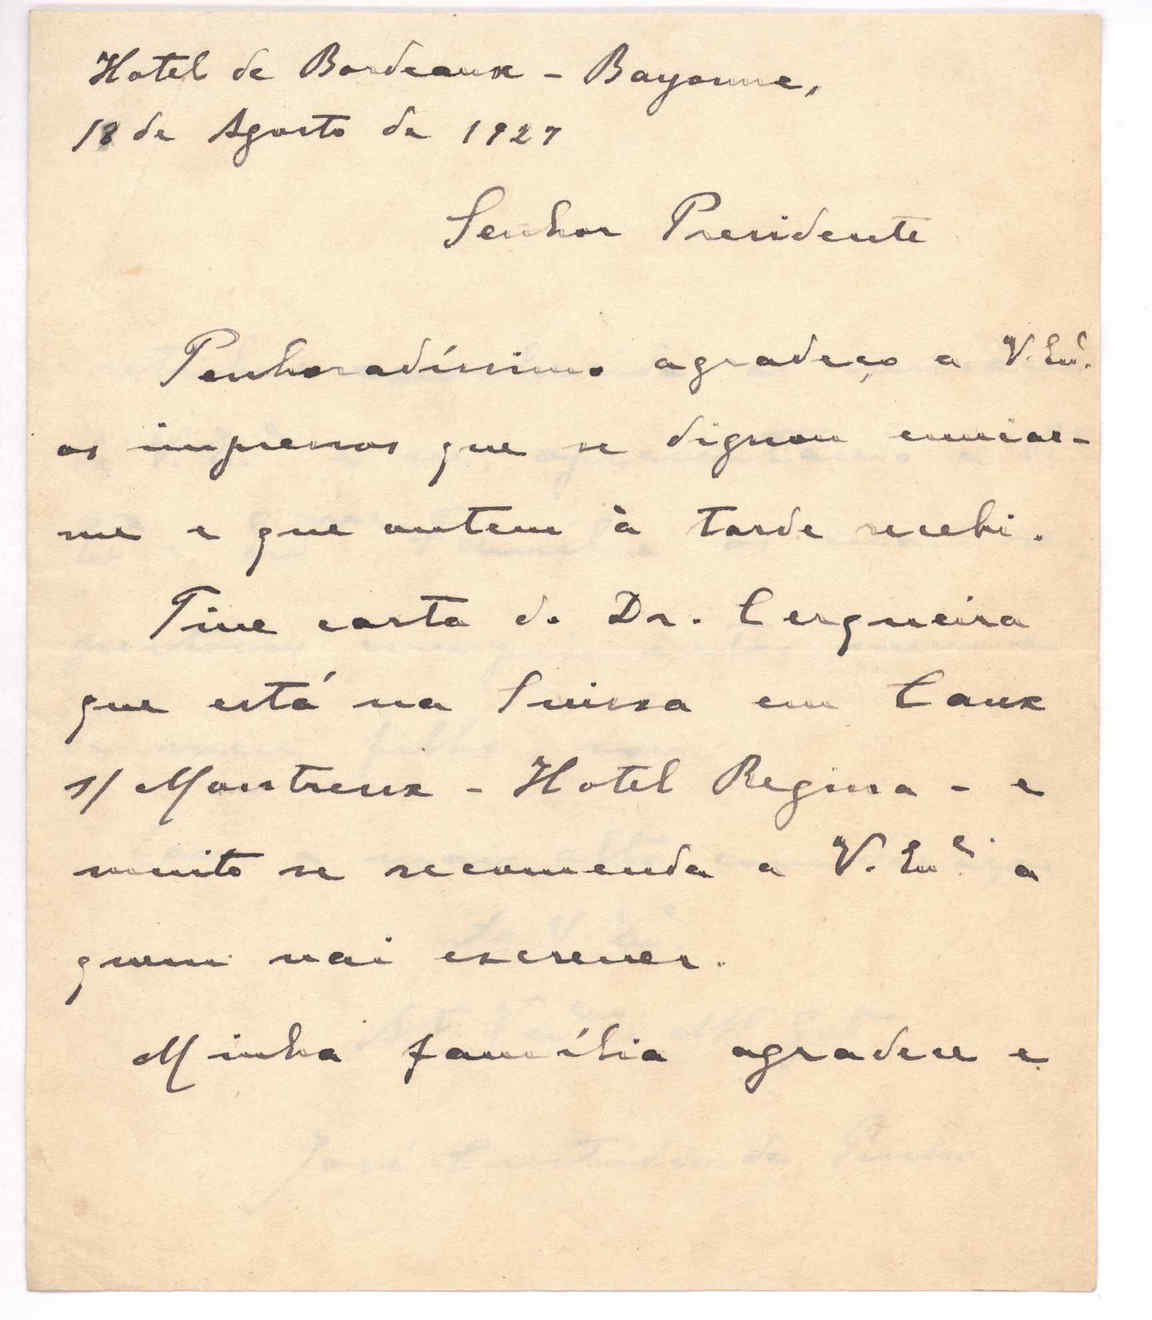 Hotel de Bordeaux - Bayonne,
18 de Agosto de 1927
Senhor Presidente
Penhoradíssimo agradeço a V. Ex.ª
os impressos que se dignou enviar-
me e que ontem à tarde recebi.
Tive carta do Dr. Cerqueira
que está na Suissa em Caux
s/ Montreux - Hotel Regina - e
muito se recomenda a V. Ex.ª a
quem vai escrever.
Minha família agradece e